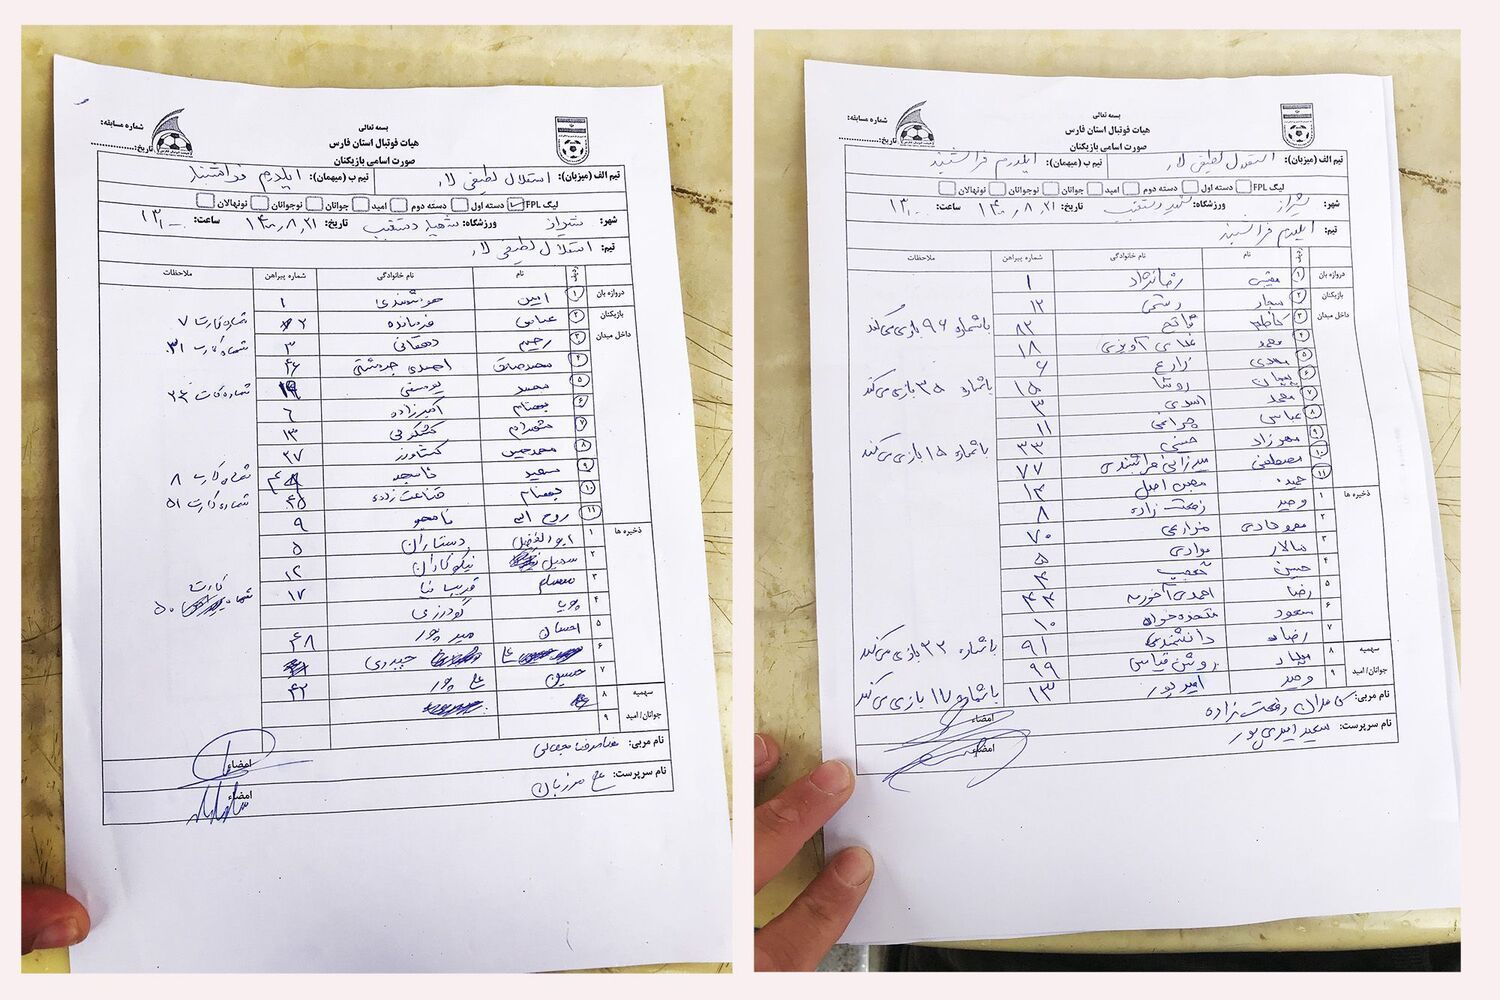 بسمه تعالی
هیات فوتبال استان فارس
صورت اسامی بازیکنان
شماره مسابقه:
تاریخ:
تیم الف (میزبان): استقلال لطیفی لار تیم ب (میهمان): ایلدرم فراشبند
لیگ FPL دسته اول دسته دوم امید جوانان نوجوانان نونهالان
شهر: شیراز ورزشگاه: شهید دستغیب تاریخ: ۱۴۰۰٫۸٫۲۱ ساعت: ۱۳٫۰۰
تیم: استقلال لطیفی لار
ردیف نام نام خانوادگی شماره پیراهن ملاحظات
دروازه بان ۱ امین هوشمندی ۱
بازیکنان ۲ عباس فرمانده ۲ شماره کارت ۷
داخل میدان ۳ رحیم دهقانی ۳ شماره کارت ۳۱
۴ محمدصادق احمدی ۴۶
۵ محمد یوسفی ۱۹ شماره کارت ۲۴
۶ بهنام اکبرزاده ۶
۷ شهرام کشکولی ۱۳
۸ محمدحسین کشاورز ۲۷
۹ سعید نامجو شماره کارت ۸
۱۰ بهنام قناعت زاده ۴۵ شماره کارت ۵۱
۱۱ روح اله نامجو ۹
ذخیره ها ۱ ابوالفضل دستاران ۵
۲ سهیل نیکوکاران ۱۲
۳ میثم فریبا نیا ۱۷
۴ پویا گودرزی شماره کارت ۵۰
۵ احسان میرپور ۴۸
۶ علی حیدری
۷ حسین علی پور ۴۲
سهمیه ۸
جوانان/ امید ۹
نام مربی: امضاء
نام سرپرست: علی مرزبان امضاء
بسمه تعالی
هیات فوتبال استان فارس
صورت اسامی بازیکنان
شماره مسابقه:
تاریخ:
تیم الف (میزبان): استقلال لطیفی لار تیم ب (میهمان): ایلدرم فراشبند
لیگ FPL دسته اول دسته دوم امید جوانان نوجوانان نونهالان
شهر: شیراز ورزشگاه: شهید دستغیب تاریخ: ۱۴۰۰٫۸٫۲۱ ساعت: ۱۳٫۰۰
تیم: ایلدرم فراشبند
ردیف نام نام خانوادگی شماره پیراهن ملاحظات
دروازه بان ۱ مجتبی رضانژاد ۱
بازیکنان ۲ سجاد رستمی ۱۲
داخل میدان ۳ کاظم فاتح ۸۲ با شماره ۹۶ بازی می‌کند
۴ محمد ۱۸
۵ مهدی زارع ۶
۶ پیمان روستا ۱۵ با شماره ۳۵ بازی می‌کند
۷ محمد اسدی ۳
۸ عباس چراغی ۱۱
۹ مهرزاد حسنی ۳۳ با شماره ۱۵ بازی می‌کند
۱۰ مصطفی میرزایی فراشبندی ۷۷
۱۱ حمزه ۱۴
ذخیره ها ۱ وحید رفعت زاده ۸
۲ محمدهادی مزارعی ۷۰
۳ سالار مرادی ۵
۴ حسین شعیب ۴
۵ رضا احمدی آخورمه ۴۴
۶ مسعود متحده خواه ۱۰
۷ رضا دانشمندی ۹۱ با شماره ۲۲ بازی می‌کند
سهمیه ۸ میلاد روشن قیاسی ۹۹
جوانان/ امید ۹ وحید امیرپور ۱۳ با شماره ۱۷ بازی می‌کند
نام مربی: کامران رفعت زاده امضاء
نام سرپرست: سعید امیری پور امضاء